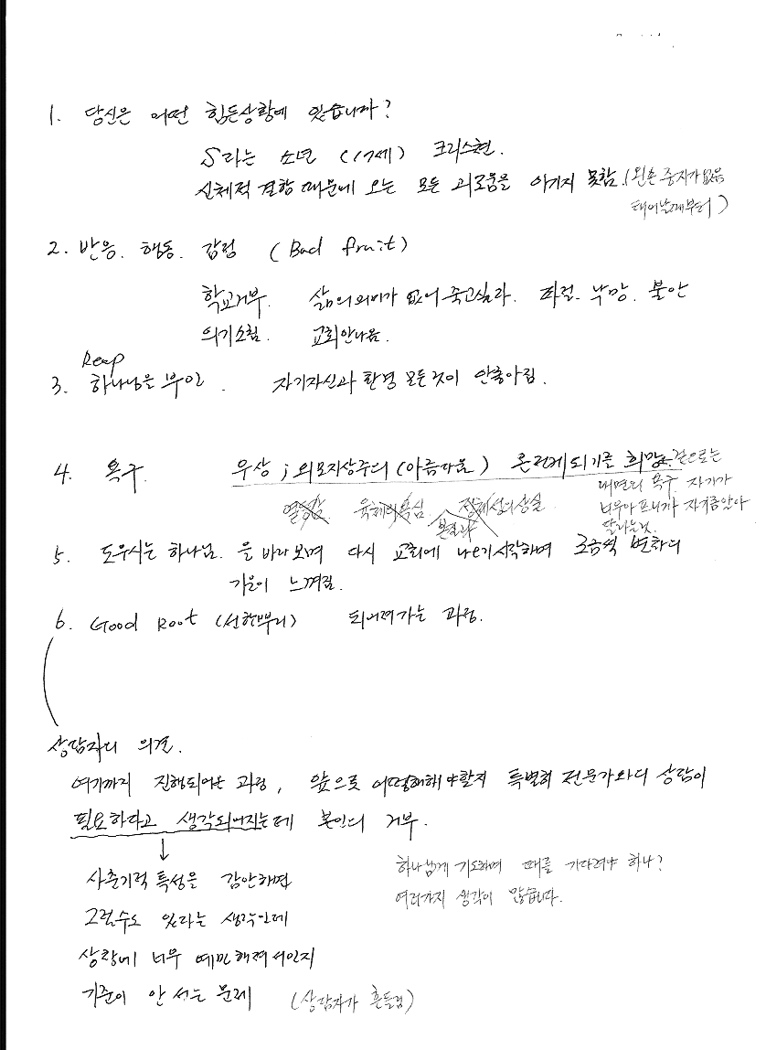 1. 당신은 어떤 힘든상황에 있습니까?
S라는 소년 (17세) 크리스천.
신체적 결함 때문에 오는 모든 괴로움을 이기지 못함. (왼손 중지가 없음
태어날때부터)
2. 반응. 행동. 감정 (Bad fruit)
학교거부. 삶의 의미가 없어 죽고싶다. 좌절. 낙망. 불안
의기소침. 교회안나옴.
Reap
3. 하나님을 부인. 자기자신과 환경 모든것이 안좋아짐.
4. 욕구. 우상 ; 외모지상주의 (아름다움) 온전케되기를 희망. 겉으로는
내면의 욕구 자기가
너무아프니까 자기좀알아
달라는것.
열등감. 육체의욕심. 정체성의상실
5. 도우시는 하나님. 을 바라보며 다시 교회에 나오기시작하며 조금씩 변화의
기운이 느껴짐.
6. Good Root (선한뿌리) 되어져가는 과정.
상담자의 의견.
여기까지 진행되어온 과정, 앞으로 어떻게해야할지 특별히 전문가와의 상담이
필요하다고 생각되어지는데 본인의 거부.
↓
사춘기적 특성을 감안하면
그럴수도 있다라는 생각인데
상황에 너무 예민해져서인지
기준이 안 서는 문제 (상담자가 흔들림)
하나님께 기도하며 때를 기다려야 하나?
여러가지 생각이 많습니다.